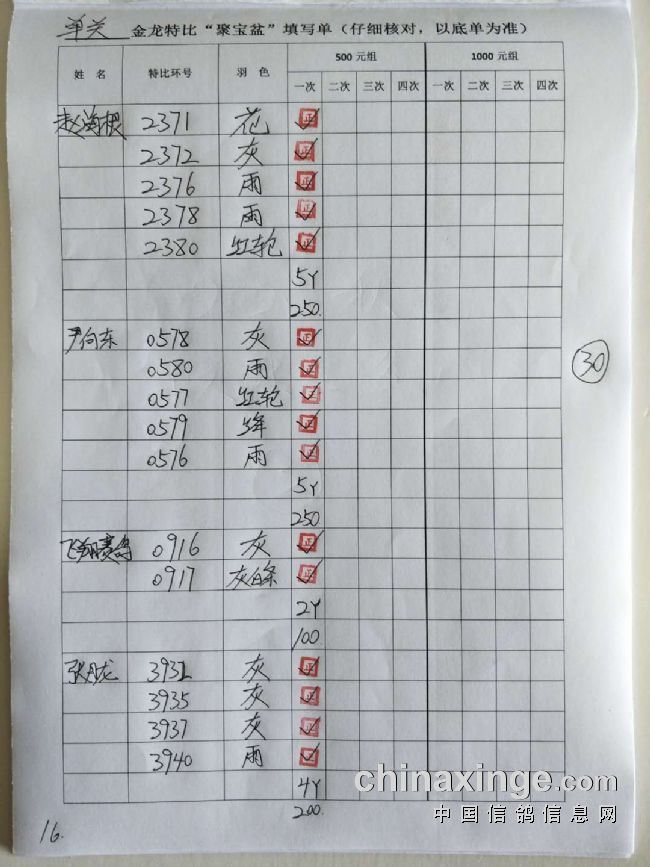 单关 金龙特比“聚宝盆”填写单（仔细核对，以底单为准）
姓 名 特比环号 羽 色 500 元组 1000 元组
一次 二次 三次 四次 一次 二次 三次 四次
赵海根 2371 花 正
2372 灰 正
2376 雨 正
2378 雨 正
2380 红轮 正
5Y
250.
尹向东 0578 灰 正
0580 雨 正
30
0577 红轮 正
0579 绛 正
0576 雨 正
5Y
250
飞翔赛鸽 0916 灰 正
0917 灰白条 正
2Y
100
3932 灰 正
3935 灰 正
3937 灰 正
3940 雨 正
4Y
200.
chinaxinge.com
中国信鸽信息网
16.